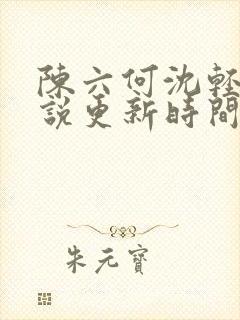 陳六何沈輕
說更新時間
朱元寶